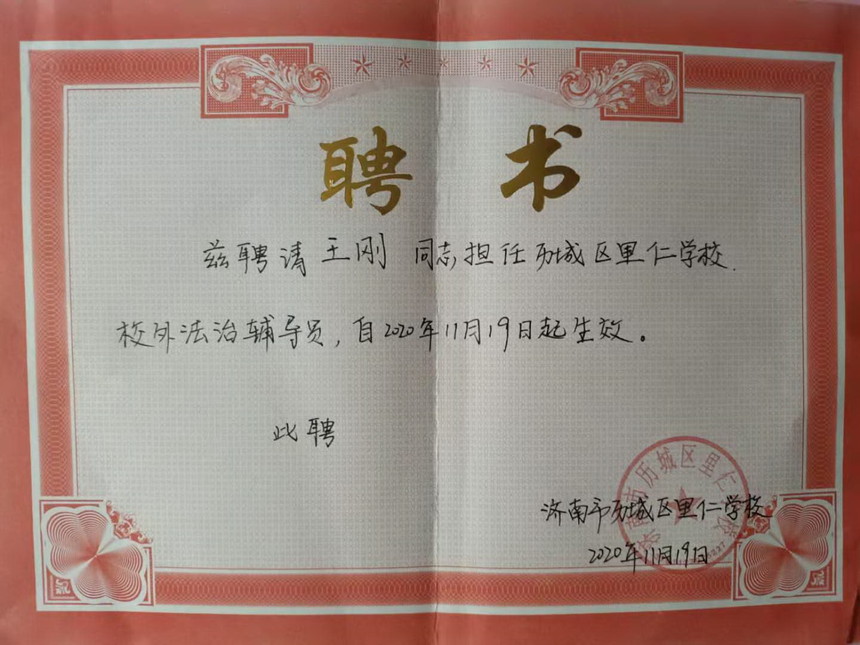 聘 书
兹聘请王刚 同志担任历城区里仁学校
校外法治辅导员，自2020年11月19日起生效。
此聘
济南市历城区里仁学校
2020年11月19日
济南市历城区里仁学校